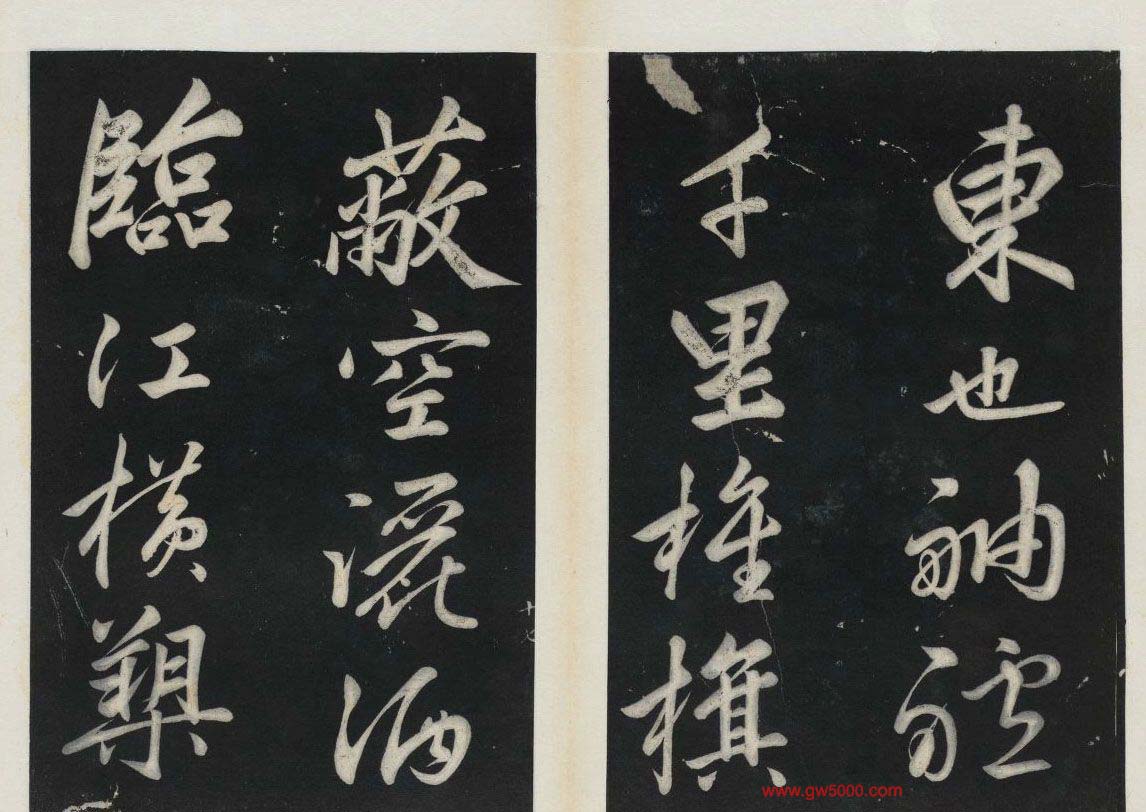 東也舳舻
千里旌旗
蔽空釃酒
臨江橫槊
www.gw5000.com